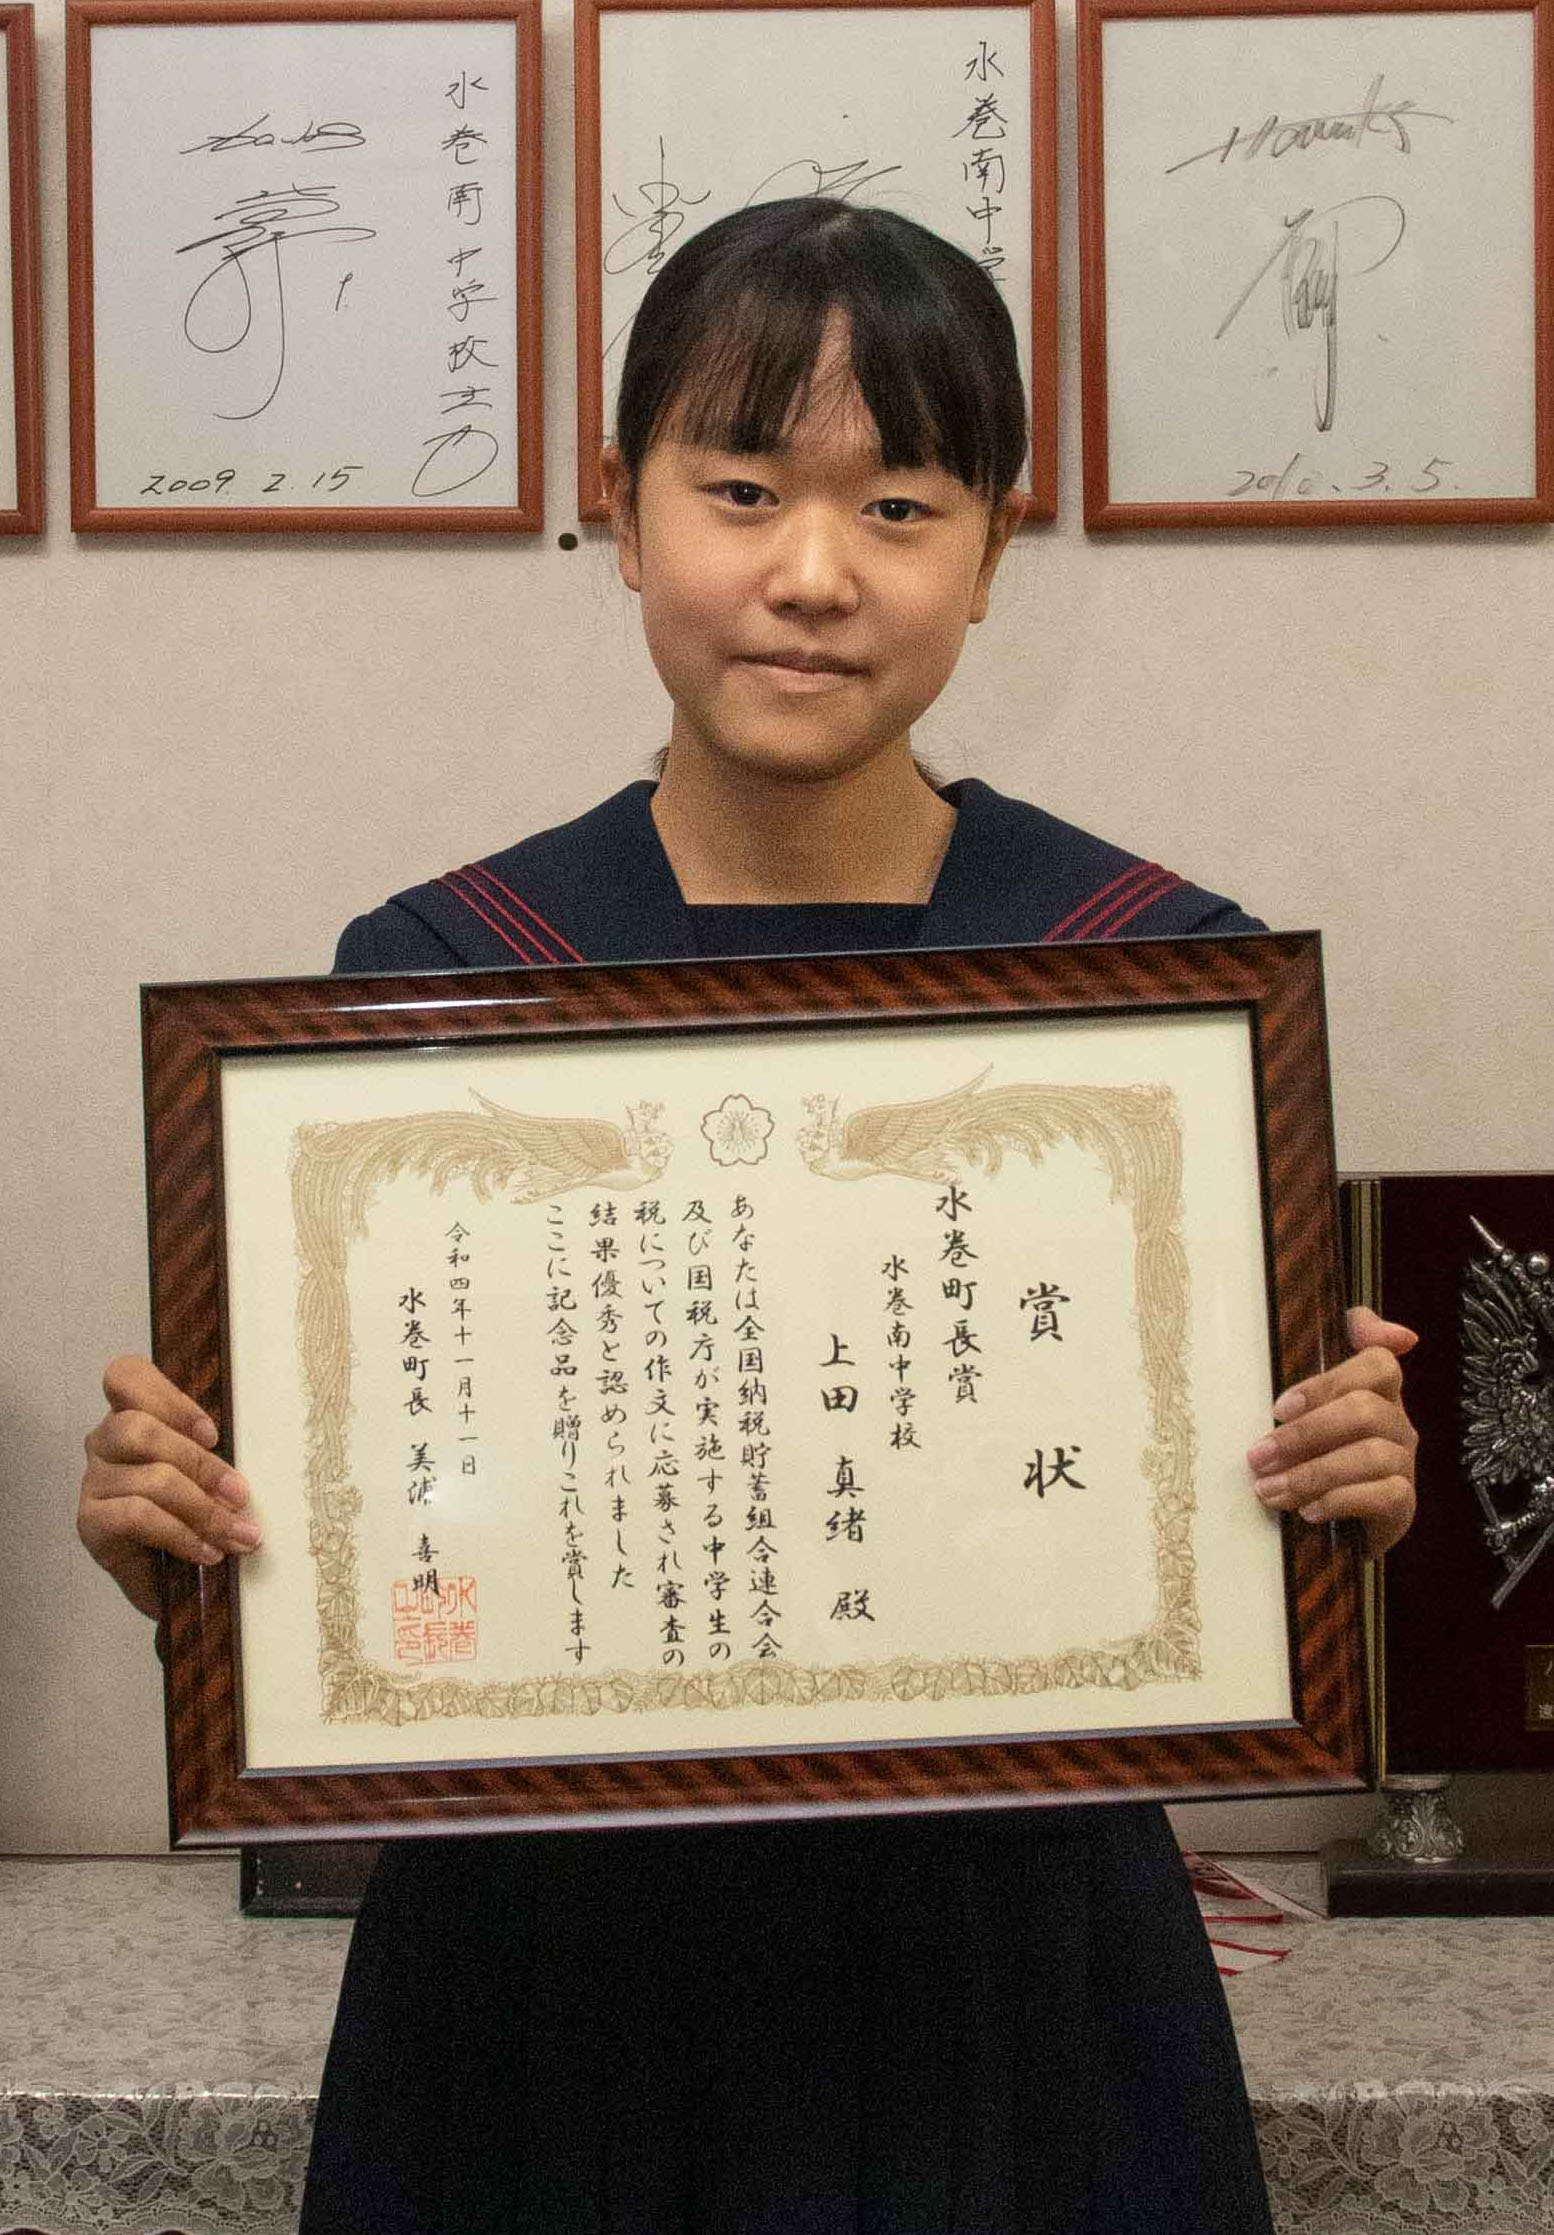 水巻南中学校
2009. 2. 15
水巻南中学
2010. 3. 5.
賞状
水巻町長賞
水巻南中学校
上田 真緒 殿
あなたは全国納税貯蓄組合連合会
及び国税庁が実施する中学生の
税についての作文に応募され審査の
結果優秀と認められました
ここに記念品を贈りこれを賞します
令和四年十一月十一日
水巻町長 美浦 喜明
水巻町長之印